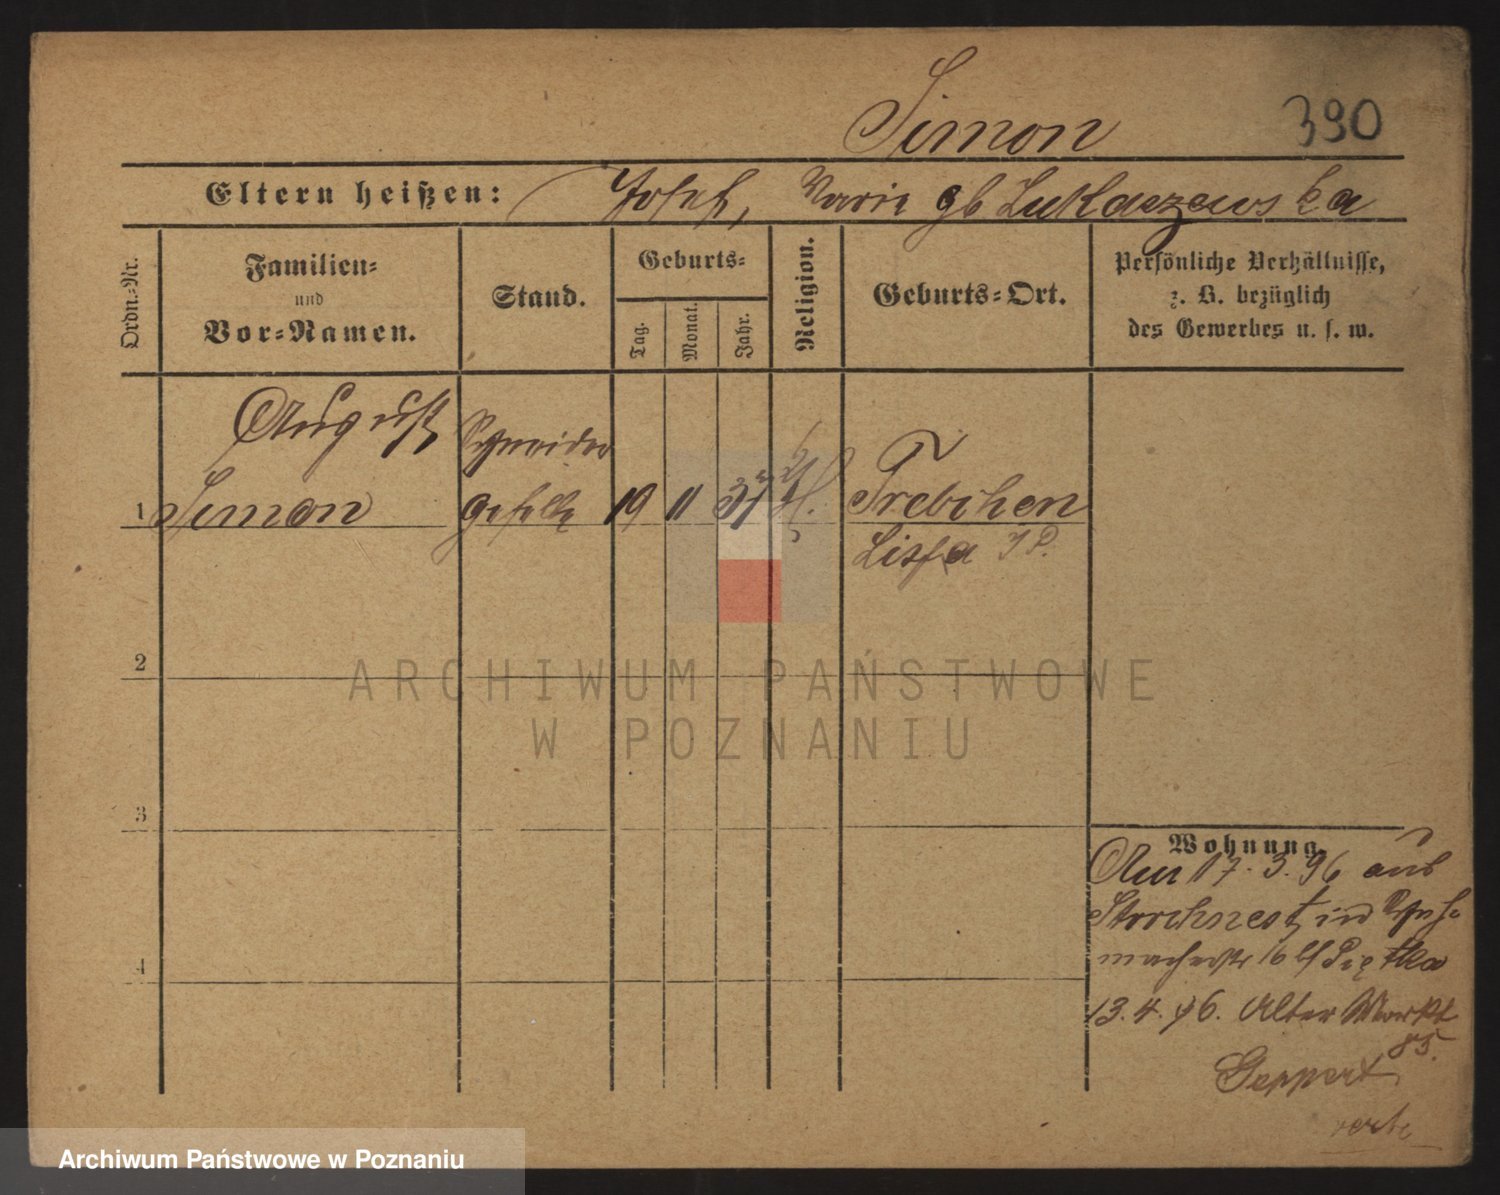 Simon 390
Eltern heißen: Josef, Marie gb Lukaszewska
Ordn.-Nr.
Familien-
und
Vor-Namen.
Stand.
Geburts-
Tag.
Monat.
Jahr.
Religion.
Geburts-Ort.
Persönliche Verhältnisse,
z. B. bezüglich
des Gewerbes u. s. w.
August Schneider
1 Simon geselle 19 11 37 Trebchen
Lissa
2
3
4
Wohnung.
Am 17.3.96 aus
Storchnest in Schuh-
macherstr 16 bf
13.4.96. Alter Markt
85.
Geppert
verte
ARCHIWUM PAŃSTWOWE
W POZNANIU
Archiwum Państwowe w Poznaniu